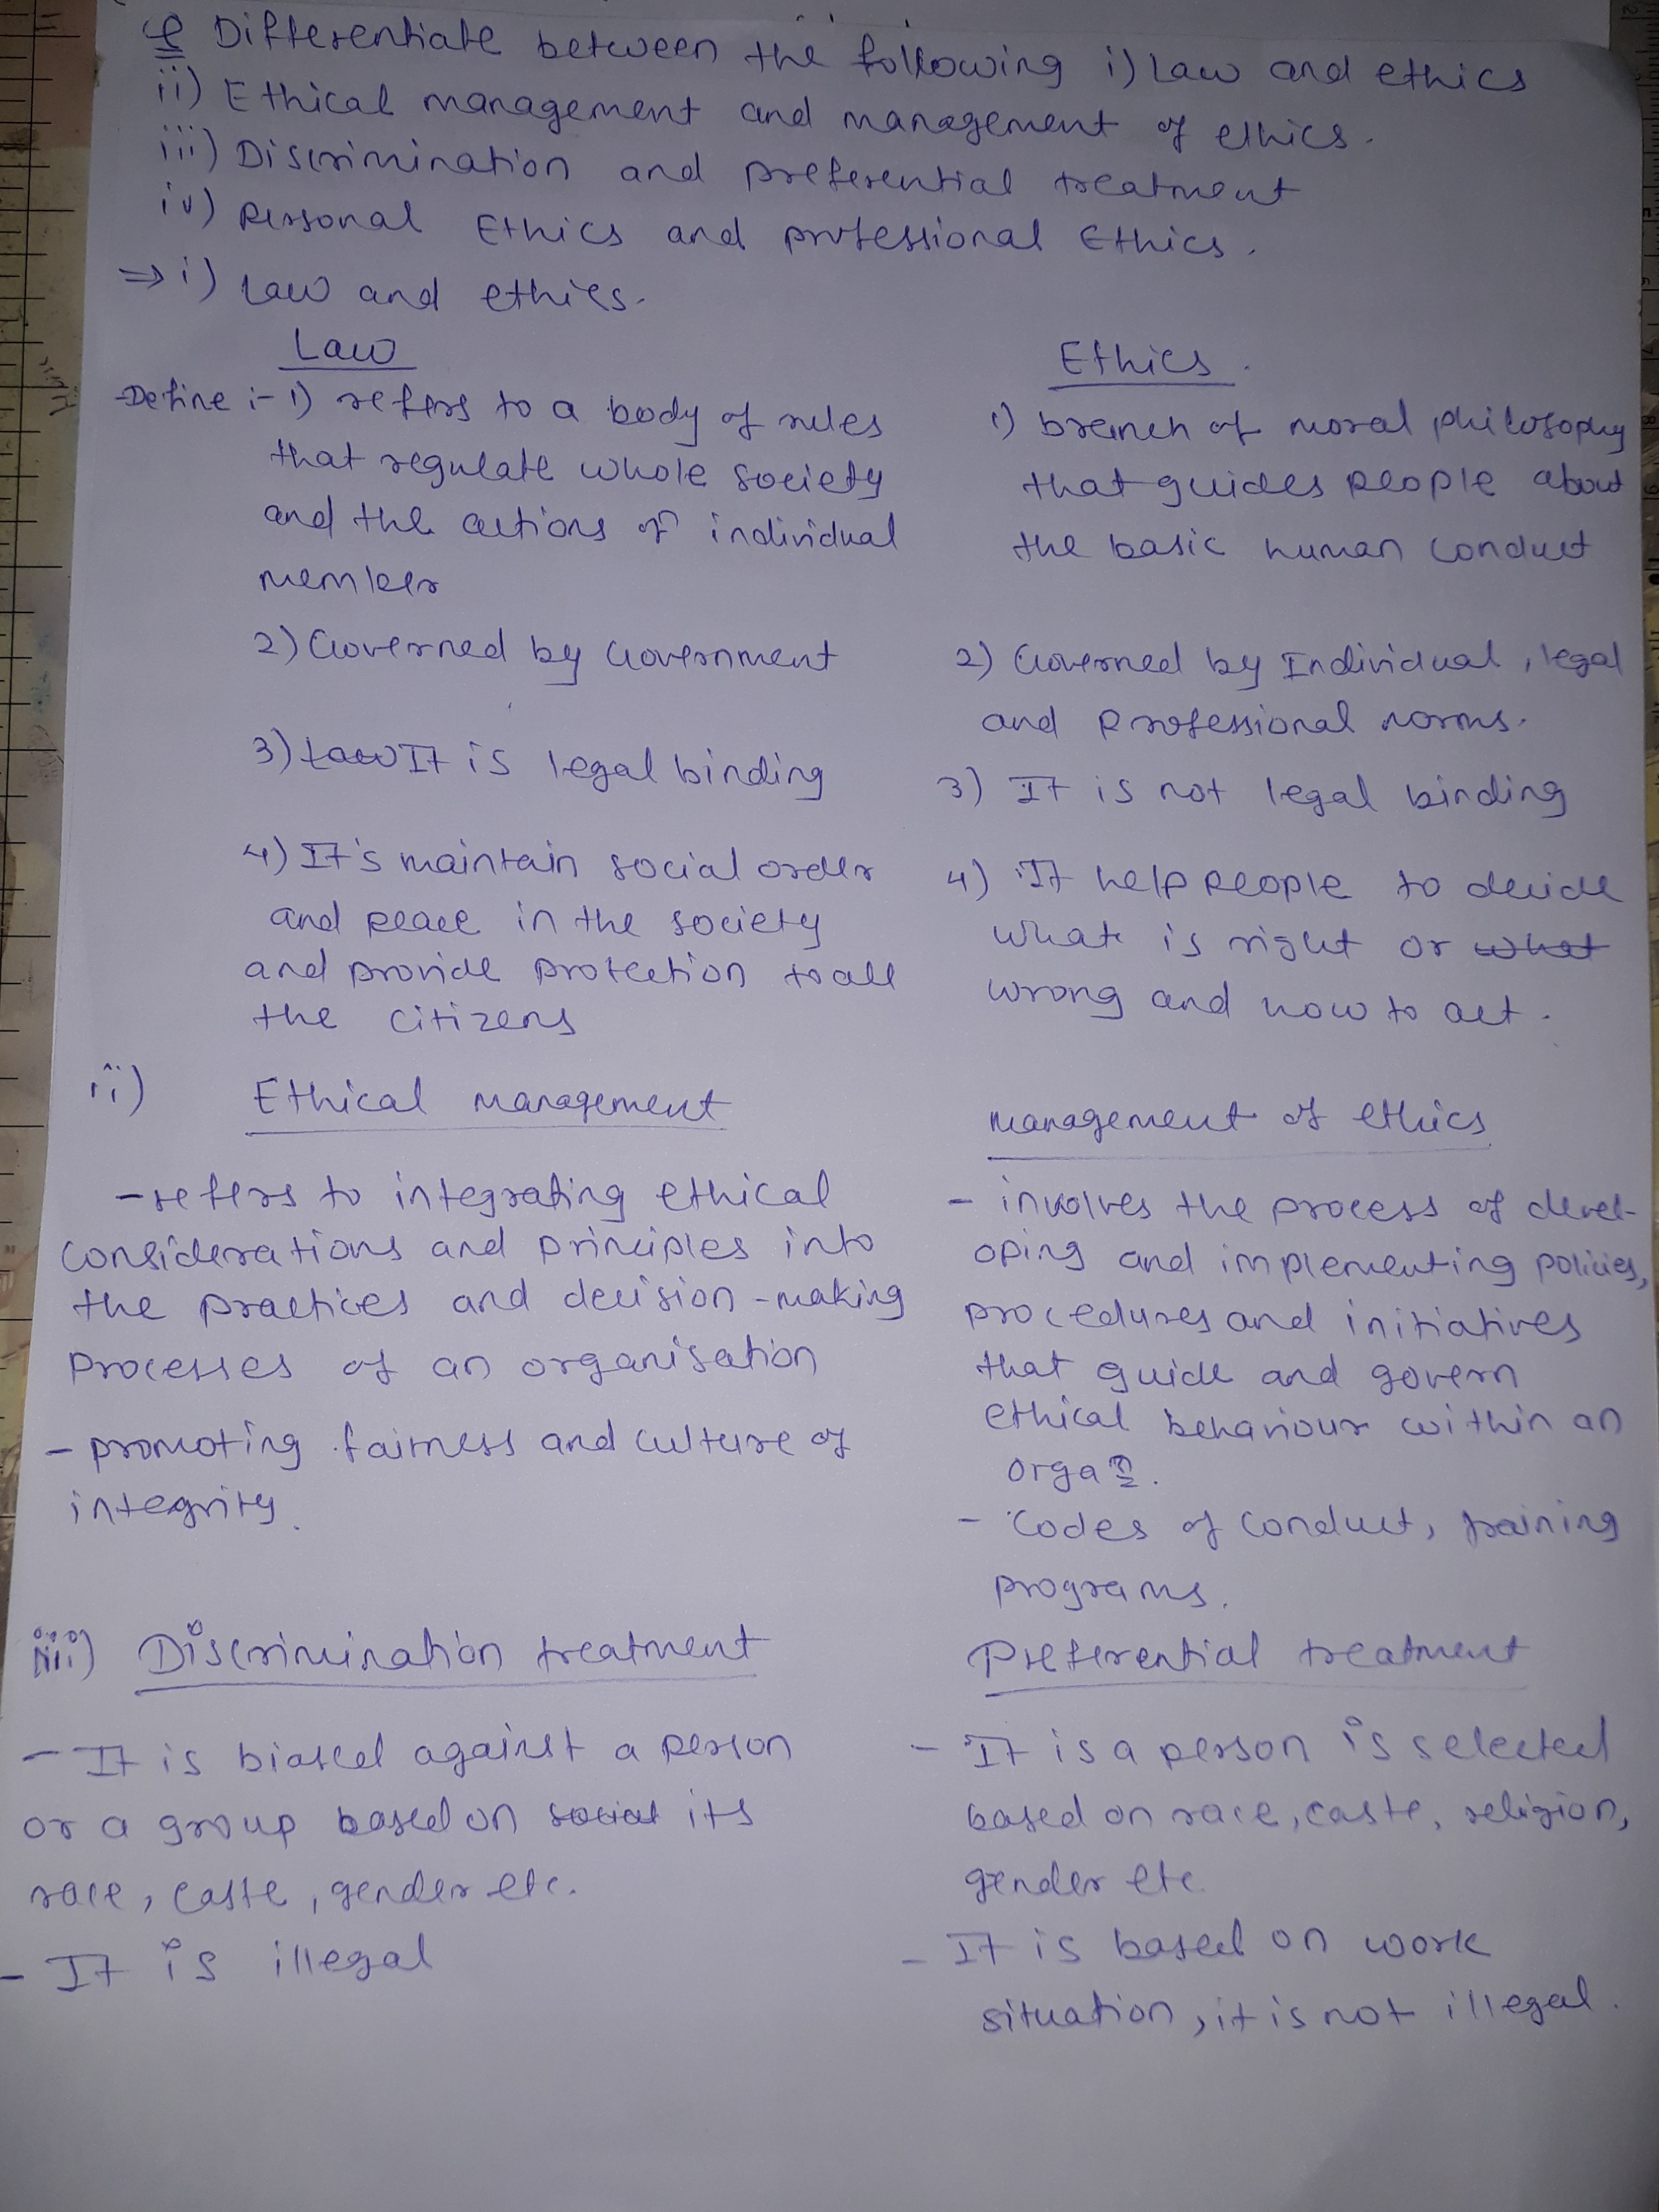 Q Differentiate between the following i) Law and ethics
ii) Ethical management and management of ethics.
iii) Discrimination and preferential treatment
iv) Personal Ethics and professional Ethics.
⇒ i) Law and ethics.
Law
Define :- 1) refers to a body of rules
that regulate whole society
and the actions of individual
member
2) Governed by Government
3) Law It is legal binding
4) It's maintain social order
and peace in the society
and provide protection to all
the citizens
Ethics.
1) branch of moral philosophy
that guides people about
the basic human conduct
2) Governed by Individual, legal
and Professional norms.
3) It is not legal binding
4) It help people to decide
what is right or what
wrong and how to act.
ii) Ethical management
- refers to integrating ethical
considerations and principles into
the practices and decision-making
processes of an organisation
- promoting fairness and culture of
integrity.
management of ethics
- involves the process of devel-
oping and implementing policies,
procedures and initiatives
that guide and govern
ethical behaviour within an
organ.
- Codes of conduct, training
programs.
iii) Discrimination treatment
- It is biased against a person
or a group based on social its
race, caste, gender etc.
- It is illegal
Preferential treatment
- It is a person is selected
based on race, caste, religion,
gender etc.
- It is based on work
situation, it is not illegal.